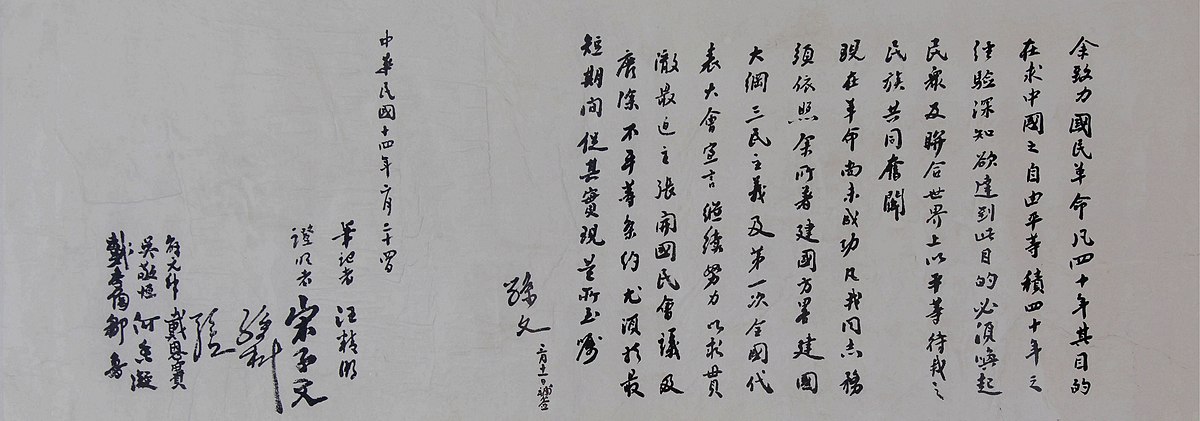 余致力國民革命凡四十年其目的
在求中國之自由平等積四十年之
經驗深知欲達到此目的必須喚起
民眾及聯合世界上以平等待我之
民族共同奮鬭
現在革命尚未成功凡我同志務
須依照余所著建國方畧建國
大綱三民主義及第一次全國代
表大會宣言繼續努力以求貫
澈最近主張開國民會議及
廢除不平等條約尤須於最
短期間促其實現是所至囑
孫文 三月十一日補簽
中華民國十四年二月二十四日
筆記者 汪精衛
證明者 宋子文
孫科
邵元冲 戴恩賽
吳敬恆 何香凝
戴季陶 鄒魯